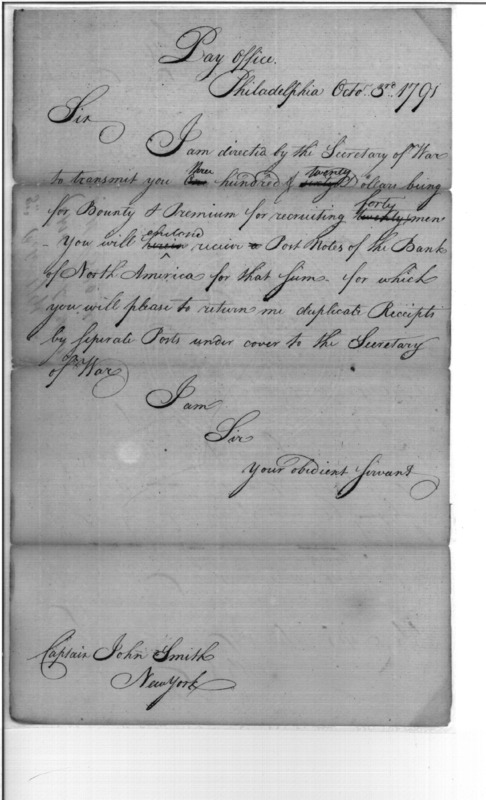 Pay Office.
Philadelphia Octo. 3rd. 1791
Sir
I am directed by the Secretary of War
three twenty
to transmit you One hundred & sixty Dollars being
forty
for Bounty & Premium for recruiting twenty men
enclosed
- You will herein receive a Post Notes of the Bank
of North America for that sum - for which
you will please to return me duplicate Receipts
by seperate Posts under cover to the Secretary
of War
I am
Sir
your obedient servant
Captain John Smith
New York